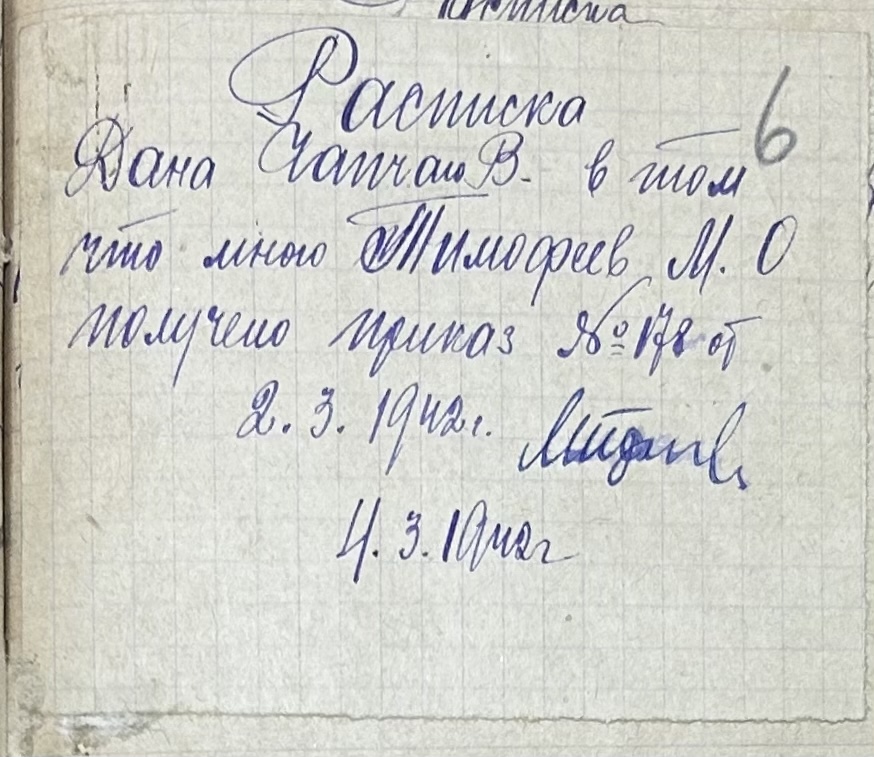 расписка
Расписка
6
Дана Чапчаю В. в том
что мною Тимофеев М. О
получено приказ № 178 от
2. 3. 1942 г.
4. 3. 1942 г